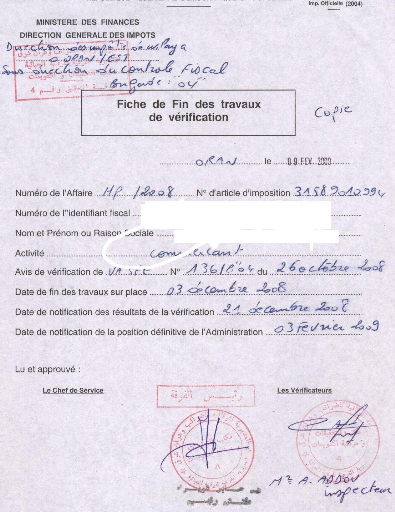 Imp. Officielle (2004)
MINISTERE DES FINANCES
DIRECTION GENERALE DES IMPOTS
Direction des impôts de wilaya
ORAN / EST
Sous direction du controle Fiscal
Brigade: "04"
Fiche de Fin des travaux
de vérification
Copie
ORAN le 09 FEV. 2009
Numéro de l'Affaire HP /2008 N° d'article d'imposition 31589010994
Numéro de l'identifiant fiscal
Nom et Prénom ou Raison Sociale
Activité
Avis de vérification de N° 136/B"04 du 26 octobre 2008
Date de fin des travaux sur place 03 décembre 2008
Date de notification des résultats de la vérification 21 décembre 2008
Date de notification de la position définitive de l'Administration 03 Février 2009
Lu et approuvé :
Le Chef de Service Les Vérificateurs
رئيس الفرقة
Mr A. ADDOU
inspecteur